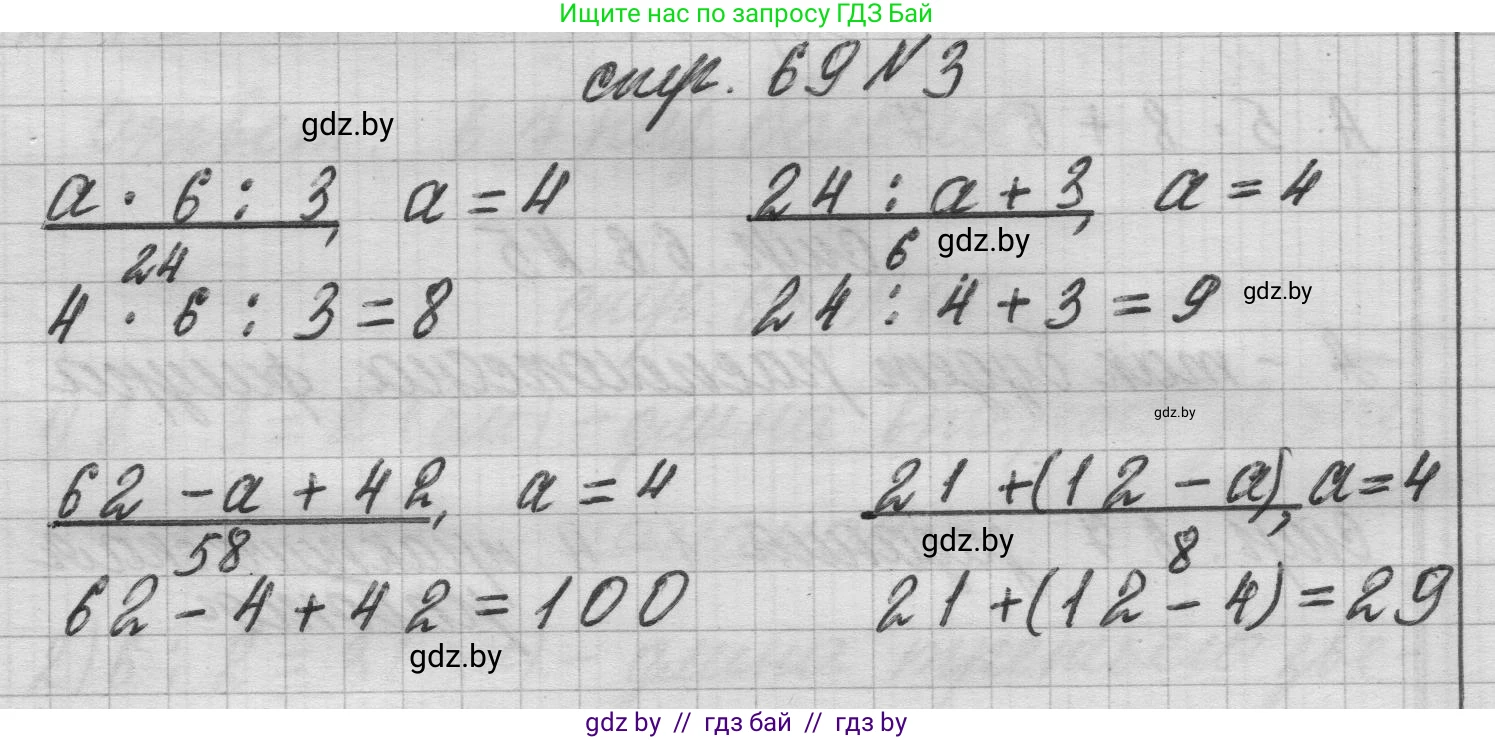 Ищите нас по запросу ГДЗ Бай
стр. 69 № 3
gdz.by
a · 6 : 3, a = 4
24 : a + 3, a = 4
24
6
gdz.by
4 · 6 : 3 = 8
24 : 4 + 3 = 9
gdz.by
gdz.by
62 - a + 42, a = 4
21 + (12 - a), a = 4
58
gdz.by
8
62 - 4 + 42 = 100
21 + (12 - 4) = 29
gdz.by
gdz by // гдз бай // гдз by